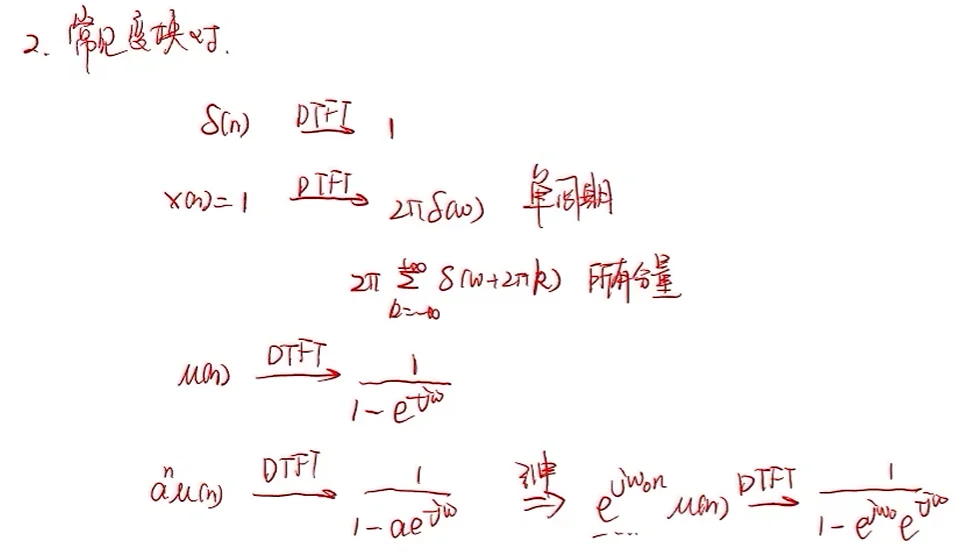 2. 常见变换对.
δ(n) DTFT→ 1
x(n)=1 DTFT→ 2πδ(ω) 单周期
2π ∑_{k=-∞}^{+∞} δ(ω+2πk) 所有分量
u(n) DTFT→ 1/(1-e^{-jω})
a^n u(n) DTFT→ 1/(1-ae^{-jω}) 引申⇒ e^{jω₀n} u(n) DTFT→ 1/(1-e^{jω₀}e^{-jω})